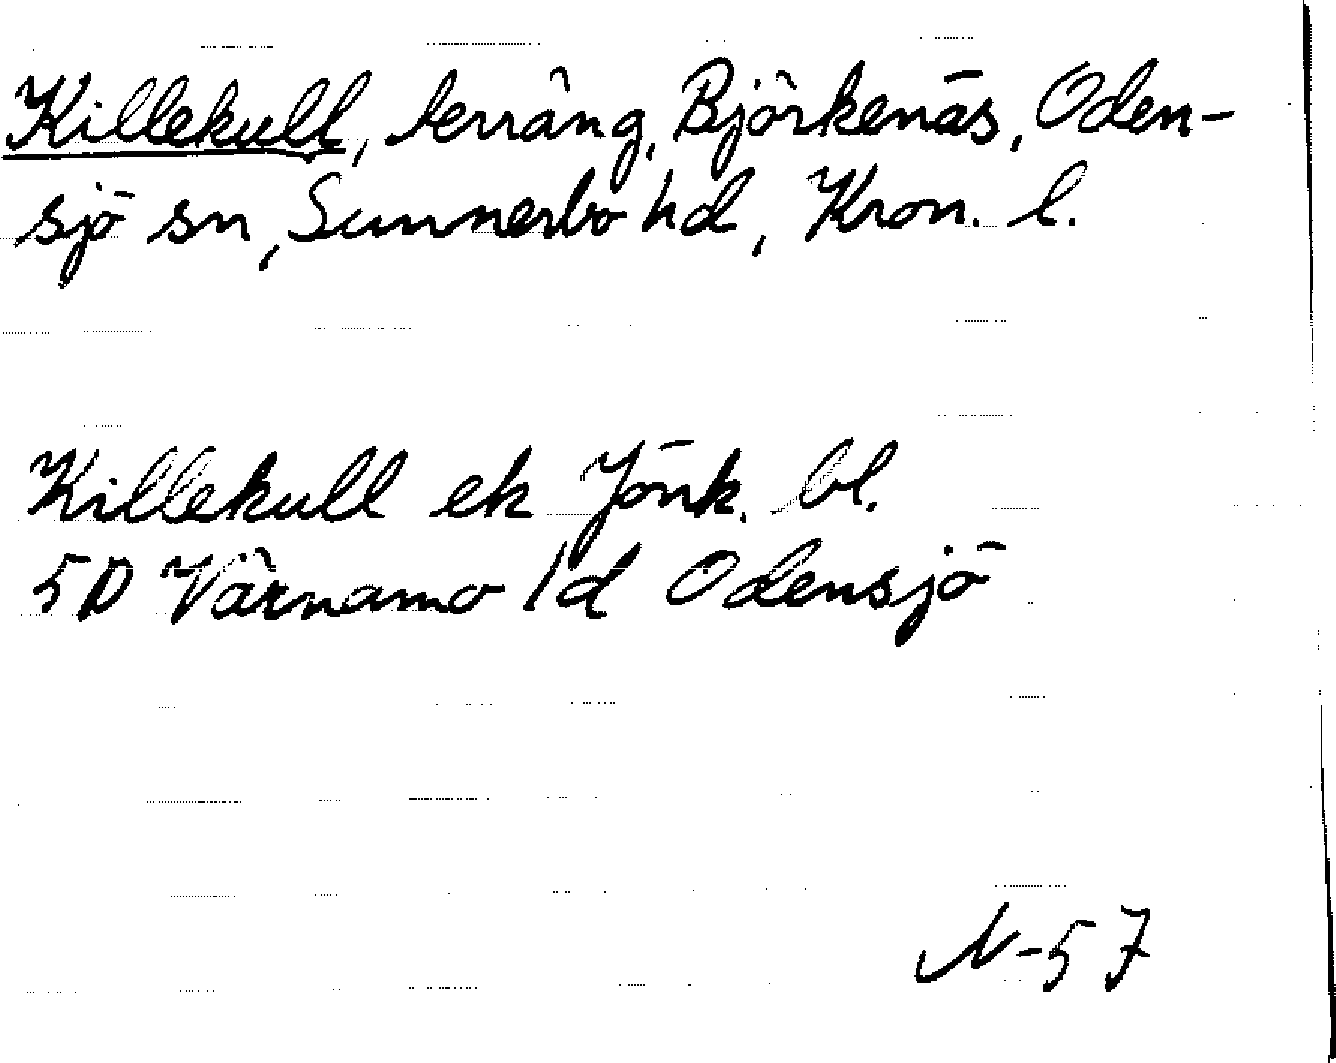 Killekull, terräng, Björkenäs, Oden-
sjö sn, Sunnerbo hd, Kron. l.
Killekull ek Jönk. bl.
5D Värnamo 1d Odensjö
N-57